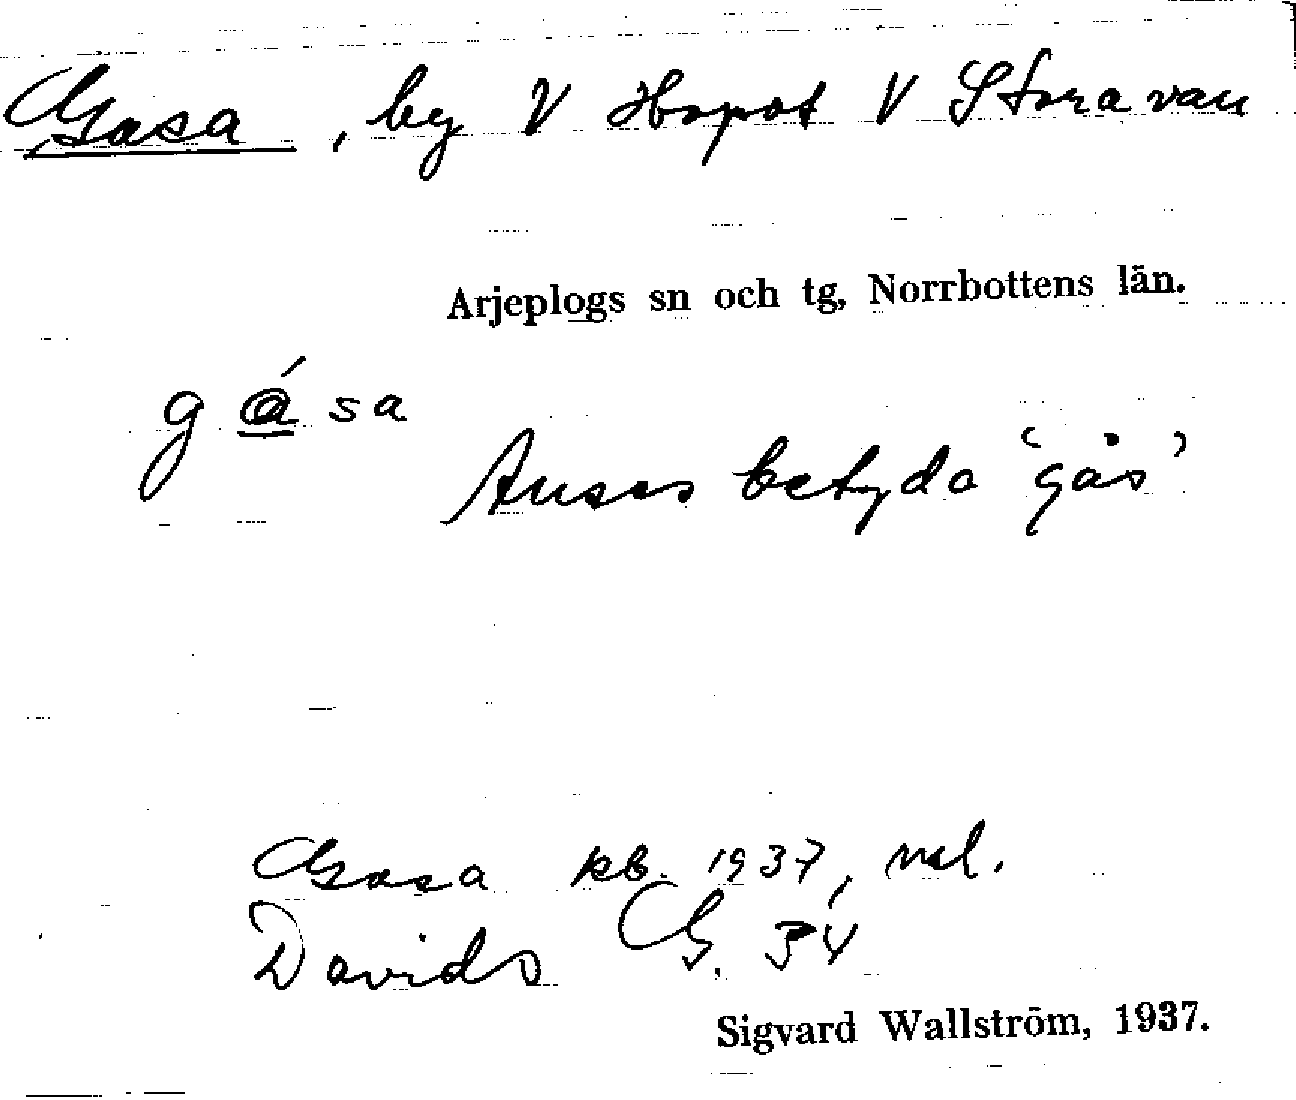 Gasa, by V Hopot V Storavan
Arjeplogs sn och tg, Norrbottens län.
gása
Anses betyda 'gås'
Gasa kb. 1937,
Davids G. 34
Sigvard Wallström, 1937.